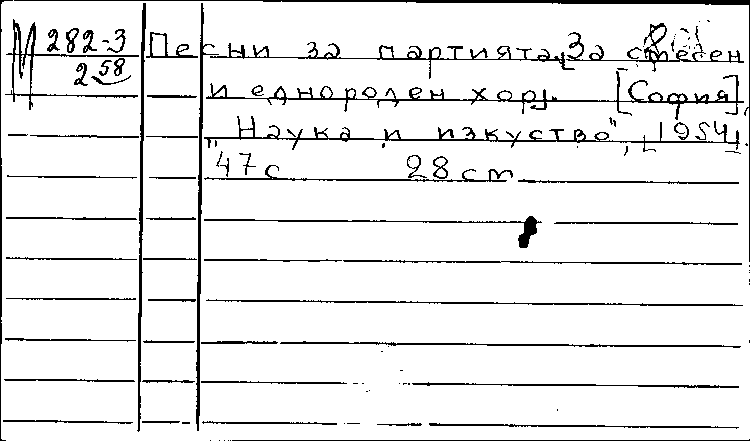 М 282-3 Песни за партията, За смесен
2 58 и еднороден хор]. [София],
"Наука и изкуство", [1954].
47 с 28 cm